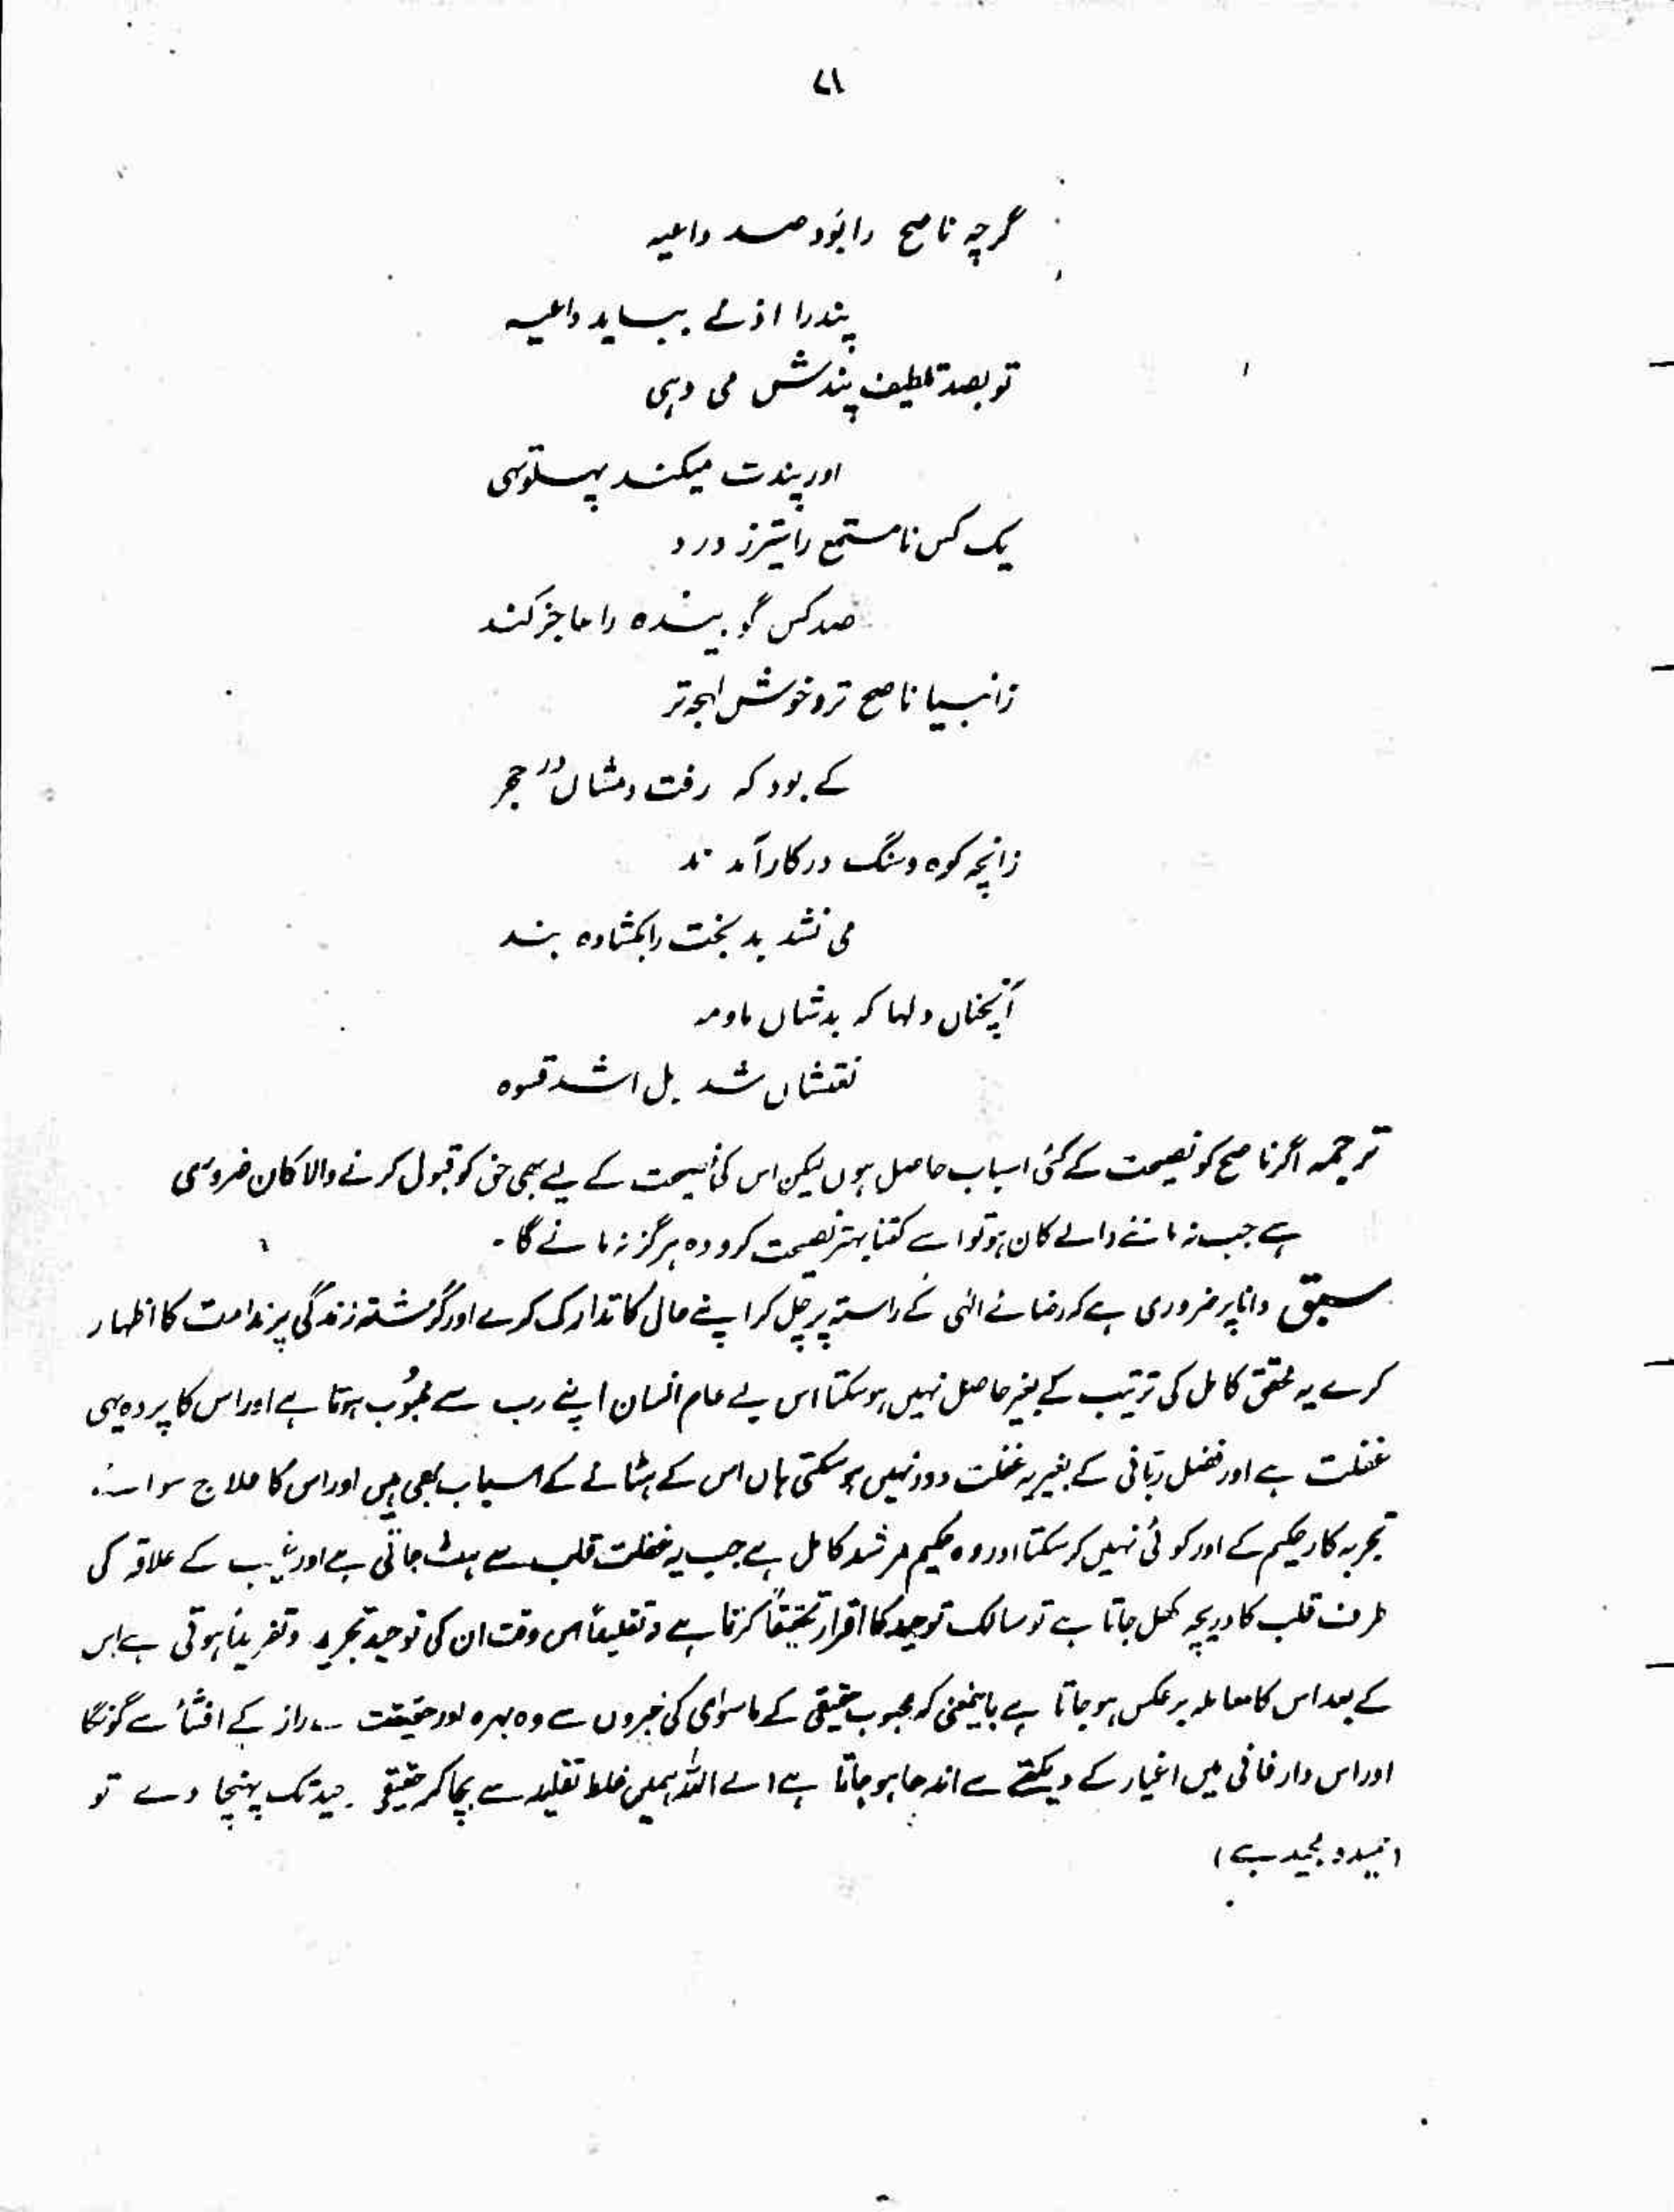 ۷۱
گرچہ ناصح را بَود صد داعیہ
پند را اذنے بباید داعیہ
تو بصد تلطیف پندش می دہی
او ر پندت میکند پہلو تہی
یک کس نا مستمع را ستیز و رد
صد کس گویندہ را عاجز کند
زانبیا ناصح تر و خوش لہجہ تر
کے بود کہ رفت دمشاں در حجر
زانچہ کوہ و سنگ در کار آمدند
می نشد بد بخت را بکشادہ بند
آنچناں دلہا کہ بدشاں ما ومہ
نقشاں شد بل اشد قسوہ
ترجمہ اگر ناصح کو نصیحت کے کئی اسباب حاصل ہوں لیکن اس کی نصیحت کے لیے بھی حق کو قبول کرنے والا کان ضروری
ہے جب نہ ماننے والے کان ہو تو اسے کتنا بہتر نصیحت کرو وہ ہرگز نہ مانے گا۔
سبق دانا پر ضروری ہے کہ رضائے الٰہی کے راستہ پر چل کر اپنے حال کا تدارک کرے اور گزشتہ زندگی پر ندامت کا اظہار
کرے یہ محقق کامل کی ترتیب کے بغیر حاصل نہیں ہو سکتا اس لیے عام انسان اپنے رب سے محجُوب ہوتا ہے اور اس کا پردہ یہی
غفلت ہے اور فضل ربّانی کے بغیر یہ غفلت دور نہیں ہو سکتی ہاں اس کے ہٹانے کے اسباب بھی ہیں اور اس کا علاج سوائے
تجربہ کار حکیم کے اور کوئی نہیں کر سکتا اور وہ حکیم مرشد کامل ہے جب یہ غفلت قلب سے ہٹ جاتی ہے اور غیب کے علاقہ کی
طرف قلب کا دریچہ کھل جاتا ہے تو سالک توحید کا اقرار تحقیقاً کرتا ہے نہ تقلیداً اس وقت ان کی توحید تجرید و تفریداً ہوتی ہے اس
کے بعد اس کا معاملہ برعکس ہو جاتا ہے بایمعنی کہ محبوب حقیقی کے ماسوای کی خبروں سے وہ بہرہ اور حقیقت کے راز کے افشأ سے گونگا
اور اس دار فانی میں اغیار کے دیکھتے سے اندھا ہو جاتا ہے اے اللہ ہمیں غلط تقلید سے بچا کر حقیقی توحید تک پہنچا دے تو
مجید ہے)